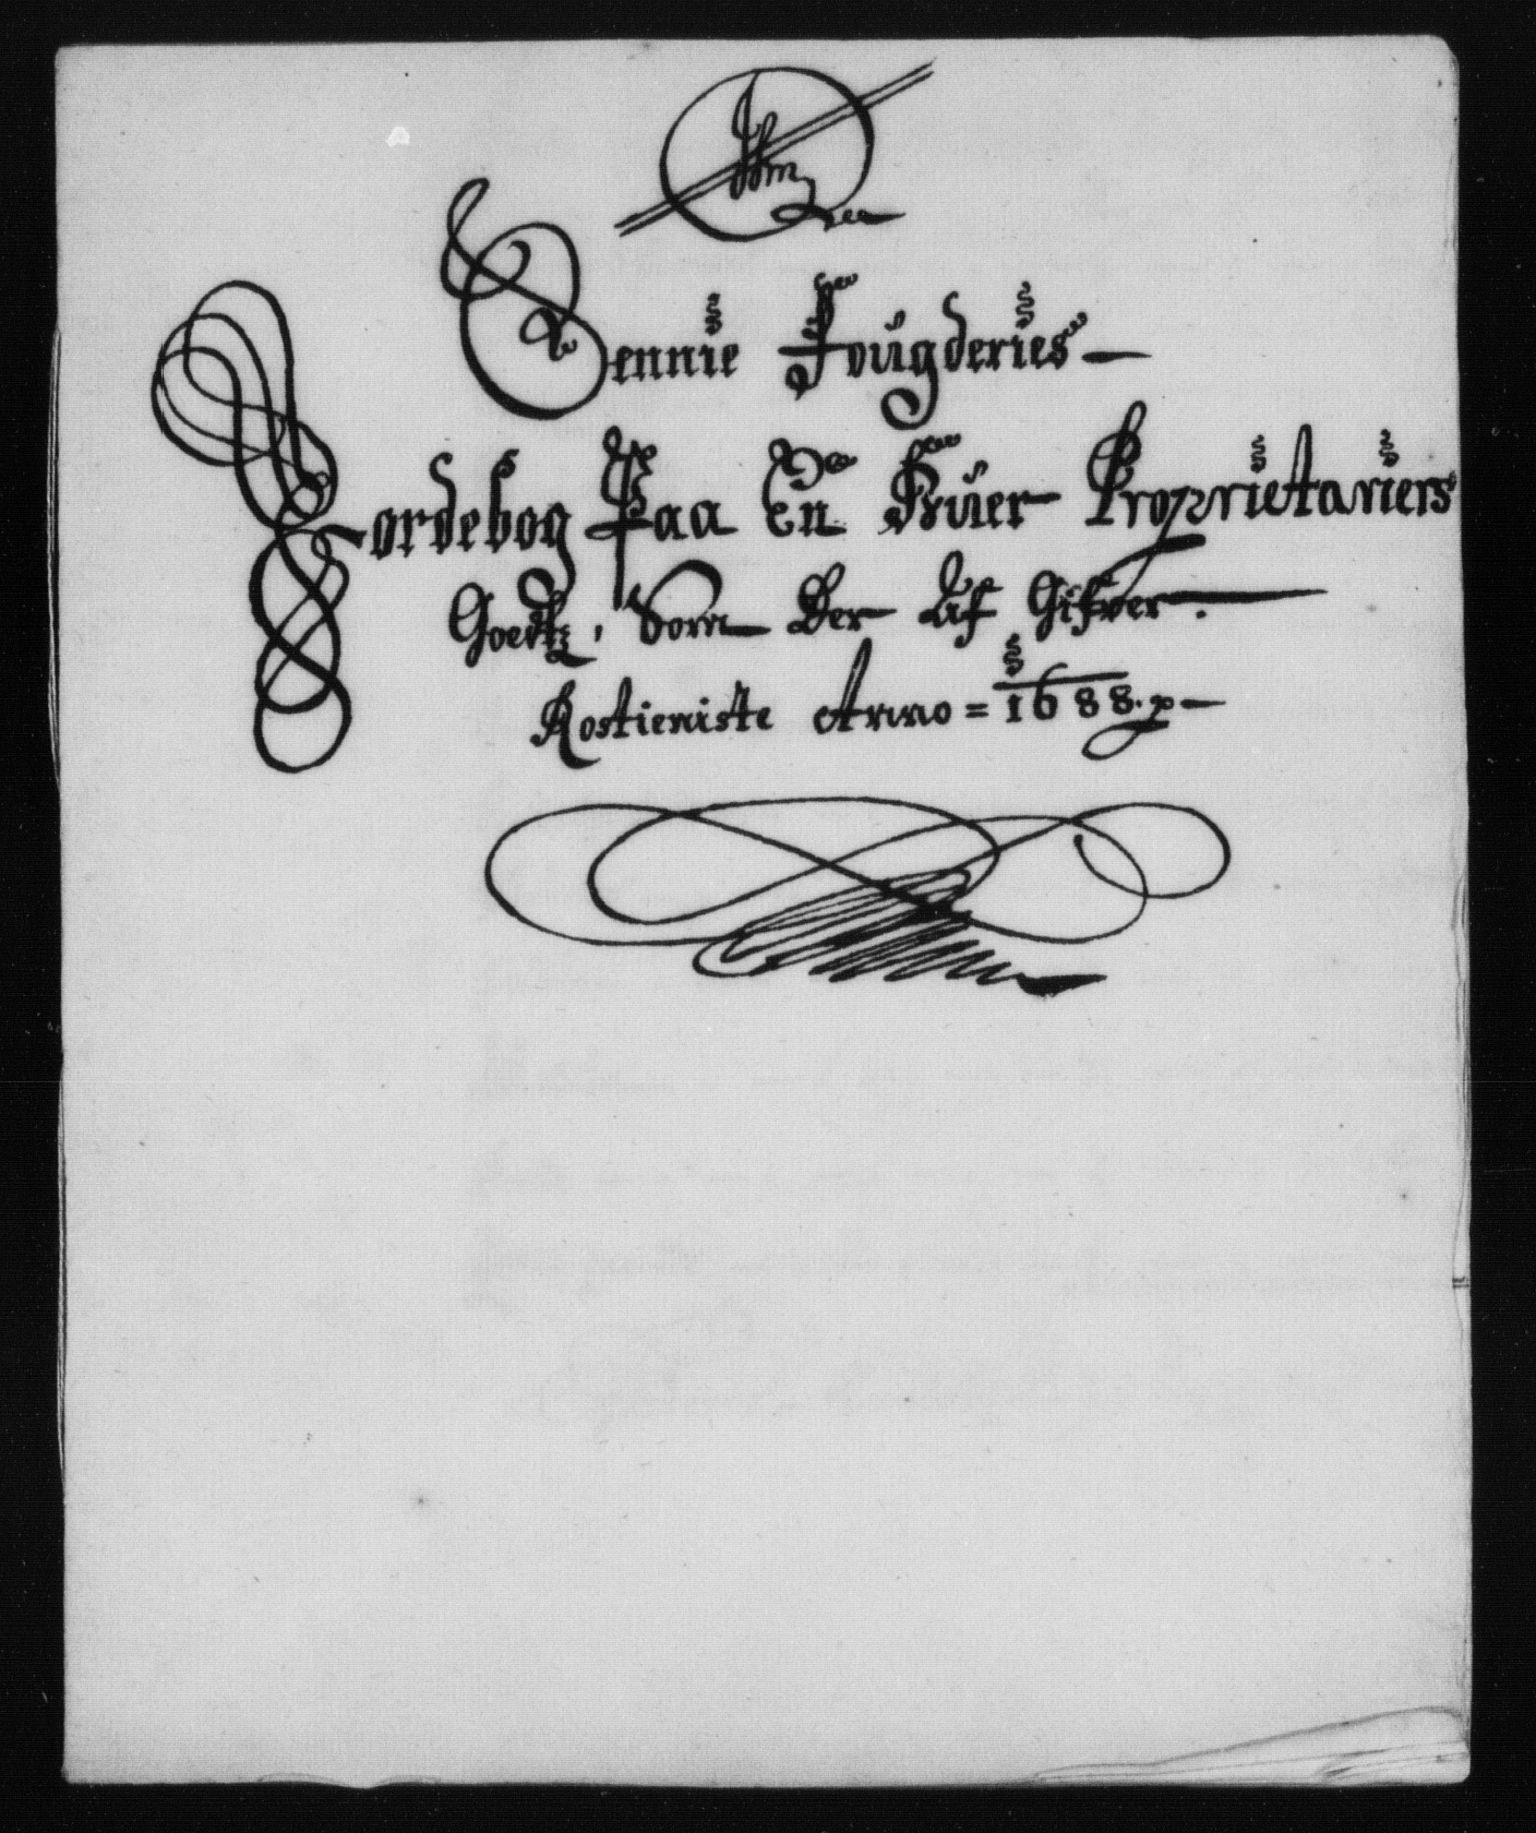 Sennie Fougderies
Jordebog Paa En Huer Proprietariers
Goedtz, Som Der Af Gifver.
Rostieniste Anno = 1688.